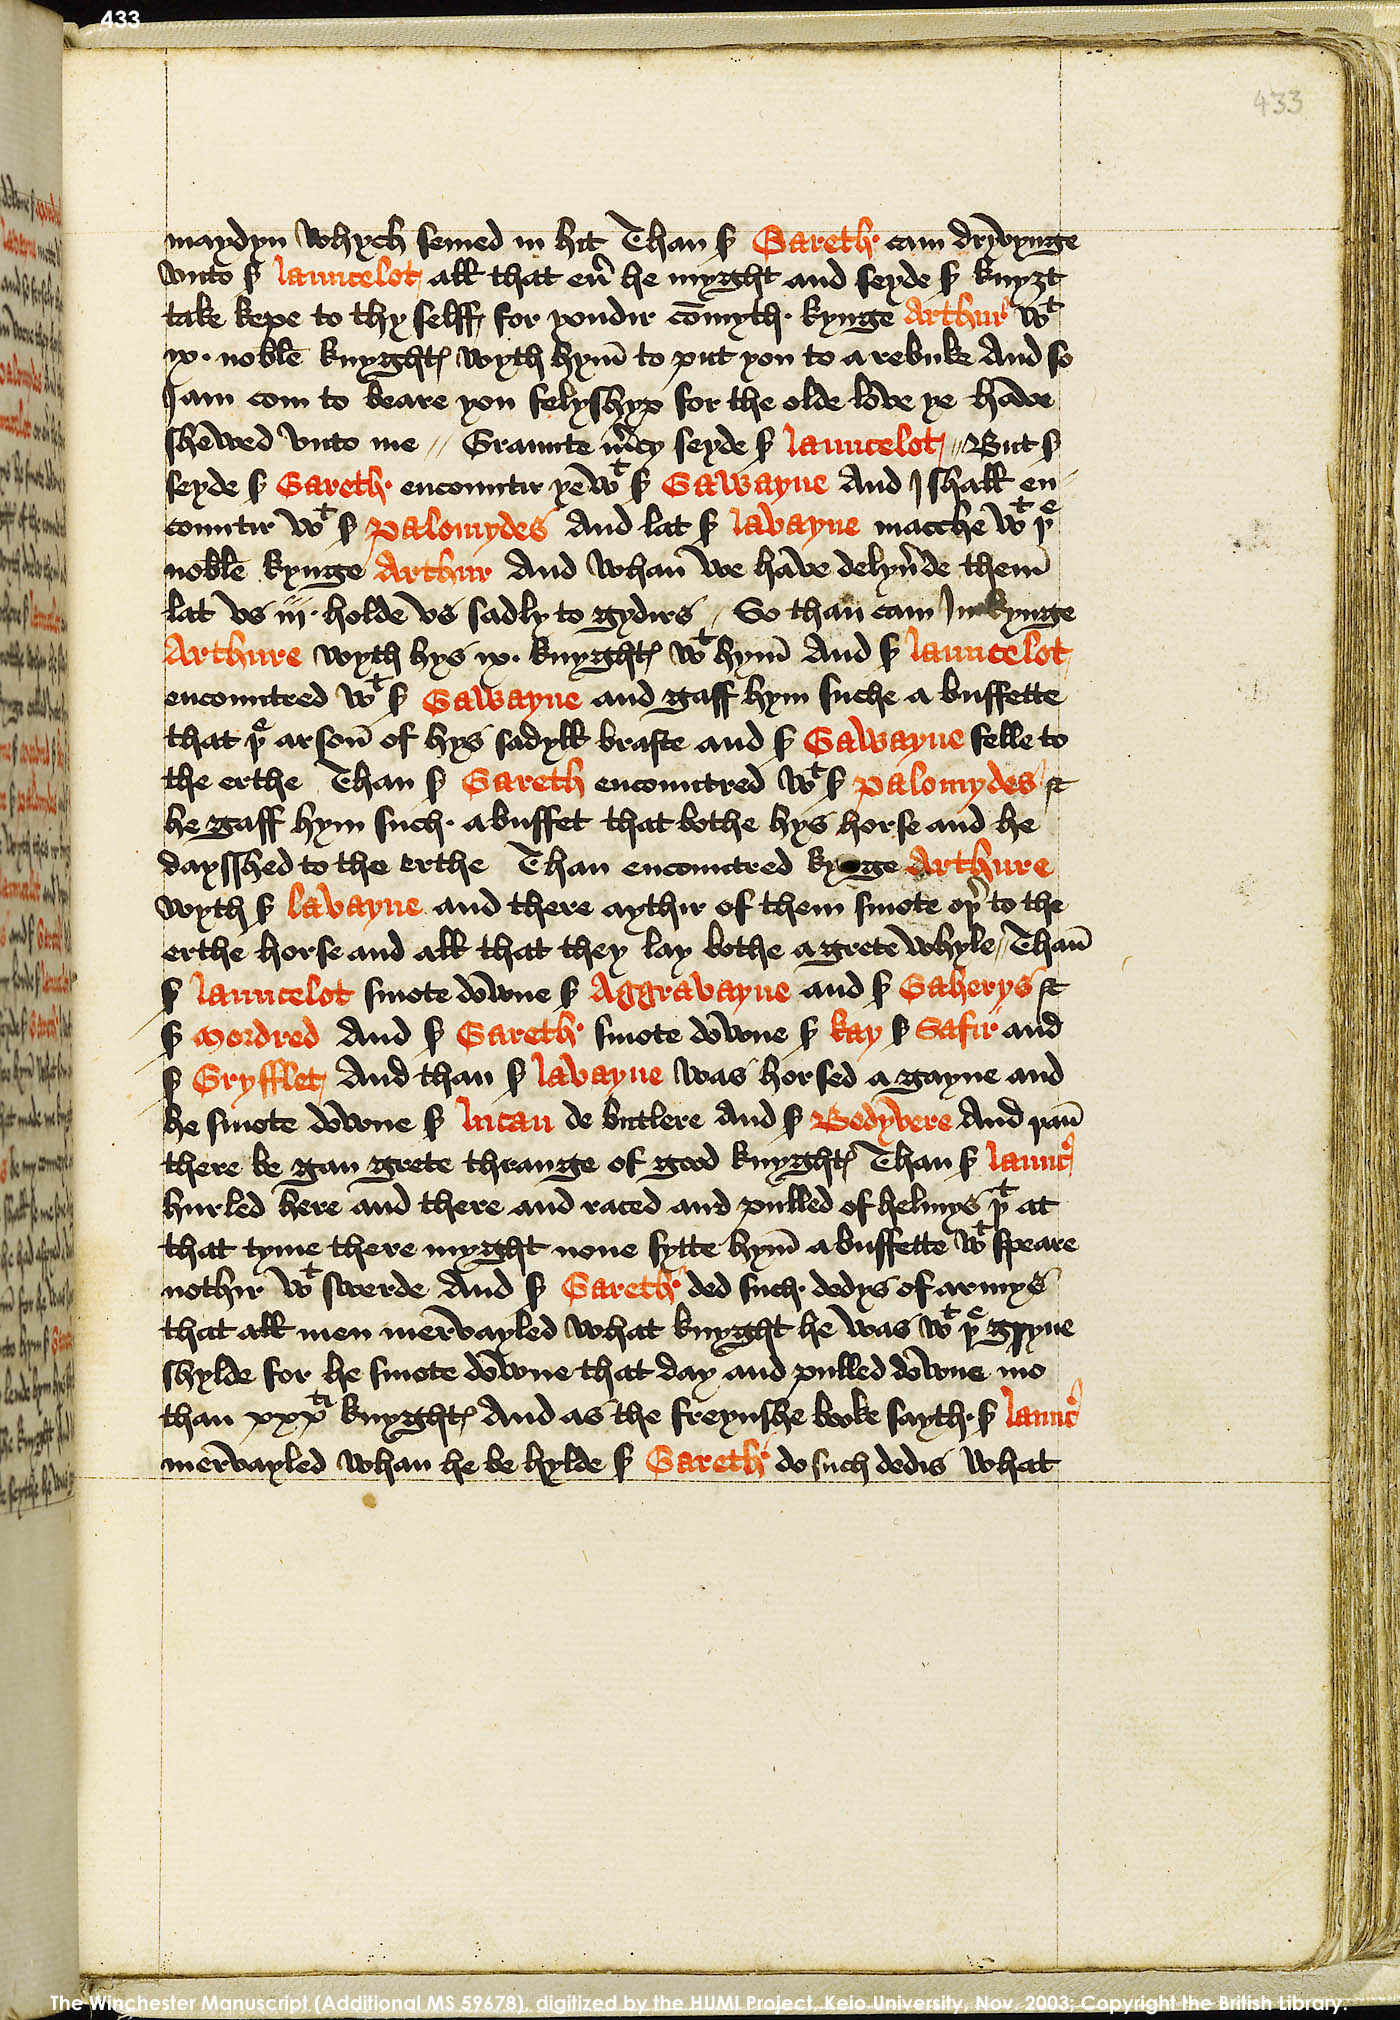 433
433
maydyn whych semed in hit Than sʳ Gareth cam dryvynge
vnto sʳ launcelot all that eũ he myght and seyde sʳ knyȝt
take kepe to thy selff for yondir cōmyth kynge Arthur wᵗ
ix · noble knyghtꝭ wyth hym̄ to put you to a rebuke And so
I am com to beare you felyshyp for the olde love ye have
shewed vnto me // Graunte m̄cy seyde sʳ launcelot // But sʳ
seyde sʳ Gareth encountir yē wᵗ sʳ Gawayne And I shall en
countir wᵗ sʳ palomydes And lat sʳ lavayne macche wᵗ þᵉ
noble kynge Arthur And whan̄ we have delyũde them̄
lat vs iij · holde vs sadly to gydirs // So than cam In kynge
Arthure wyth hys ix · knyghtꝭ wᵗ hym̄ And sʳ launcelot
encountred wᵗ sʳ Gawayne and gaff hym suche a buffette
that þᵉ arson̄ of hys sadyll braste and sʳ Gawayne felle to
the erthe Than sʳ Gareth encountred wᵗ sʳ palomydes &
he gaff hym such a buffet that bothe hys horse and he
daysshed to the erthe Than encountred kynge Arthure
wyth sʳ lavayne and there aythir of them smote oþʳ to the
erthe horse and all that they lay bothe a grete whyle // Than̄
sʳ launcelot smote downe sʳ Aggravayne and sʳ Gaherys &
sʳ Mordred And sʳ Gareth smote downe sʳ kay sʳ Safir and
sʳ Gryfflet And than sʳ lavayne was horsed a gayne and
he smote downe sʳ lucan de butlere And sʳ Bedyvere And þan̄
there be gan grete thrange of good knyghtꝭ Than sʳ launcꝰ
hurled here and there and raced and pulled of helmys þᵗ at
that tyme there myght none sytte hym̄ a buffette wᵗ speare
nothir wᵗ swerde And sʳ Gareth ded such dedys of armys
that all men mervayled what knyght he was wᵗ þᵉ gryne
shylde for he smote downe that day and pulled downe mo
than xxxᵗⁱ knyghtꝭ And as the freynshe booke sayth sʳ launcꝰ
mervayled whan he be hylde sʳ Gareth do such dedis what
The Winchester Manuscript (Additional MS 59678), digitized by the HUMI Project, Keio University, Nov. 2003; Copyright the British Library.